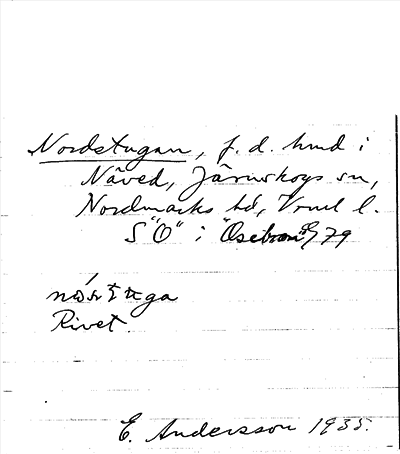 Nordstugan, f. d. hmd i
Näved, Järnskogs sn,
Nordmarks hd, Vrml l.
S "O" i "Osebron" 79
Rivet.
E. Andersson 1935.